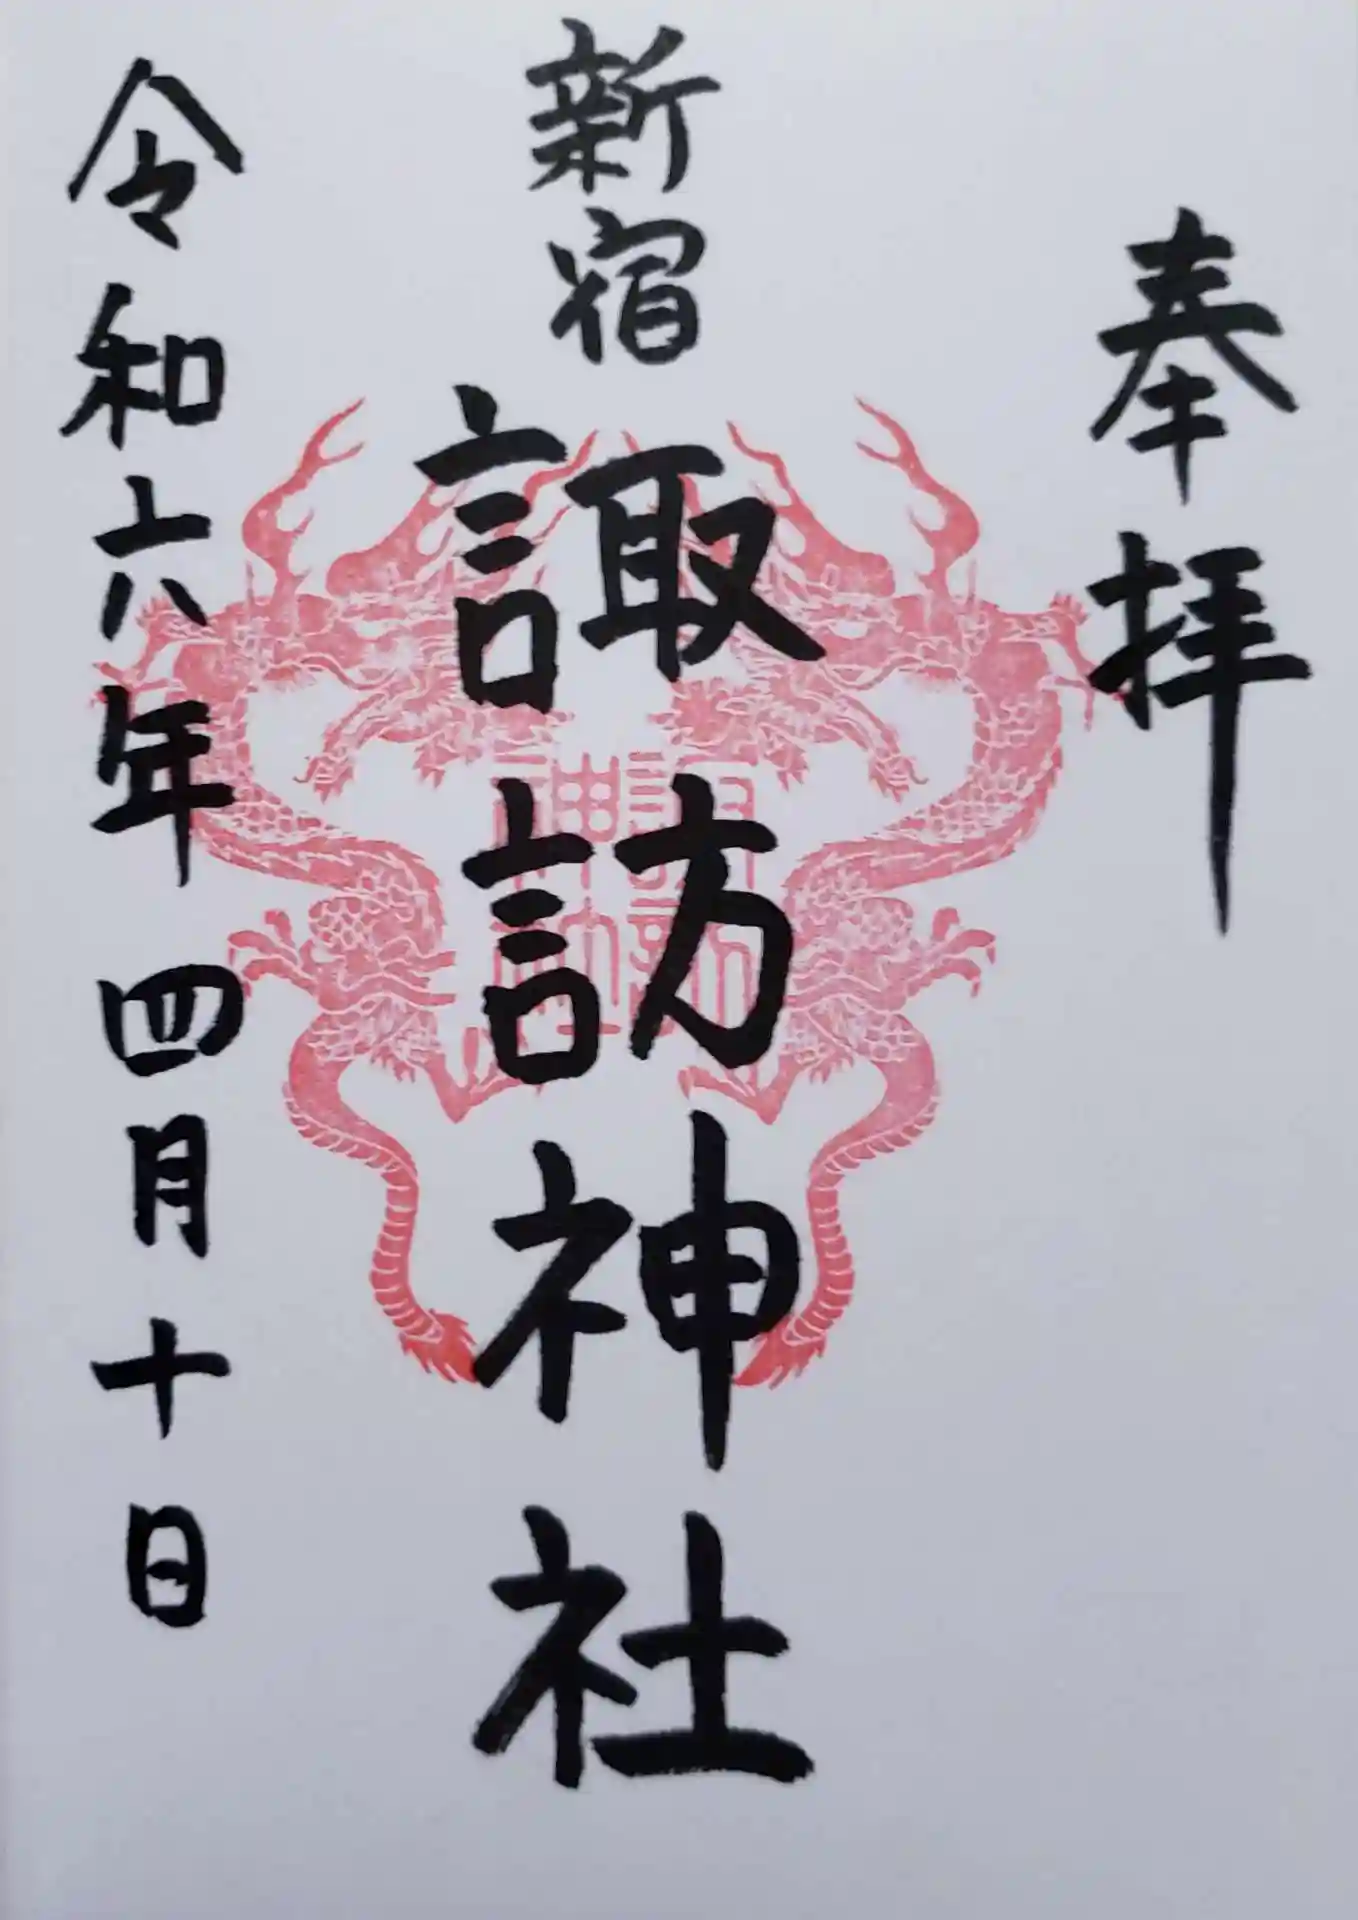 奉拝
新宿
諏訪神社
諏訪
神社
令和六年四月十日